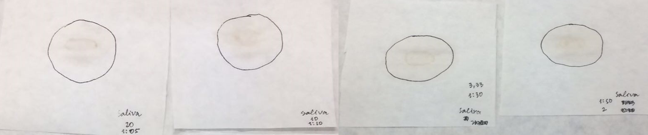 Saliva
20
1:05
Saliva
10
1:10
3,33
1:30
Saliva
1:50
2